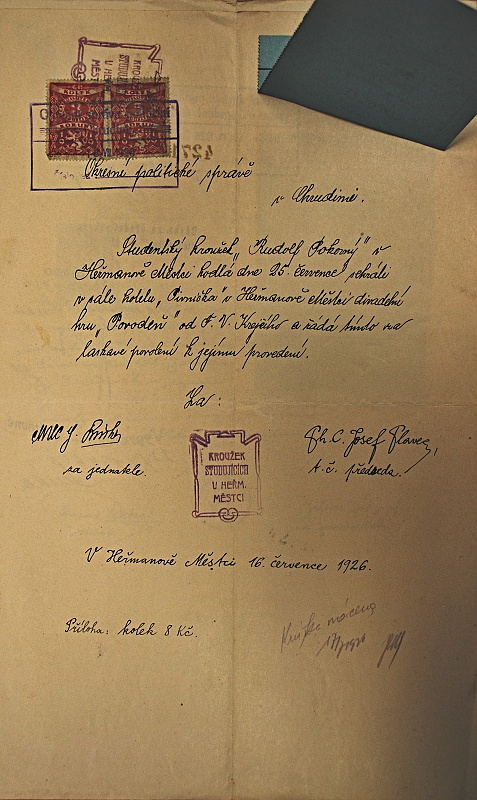 KROUŽEK
STUDUJÍCÍCH
V HEŘM.
MĚSTCI
KOLEK
Okresní politické správě
v Chrudimi.
Studentský kroužek „Rudolf Pokorný" v
Heřmanově Městci hodlá dne 25. července sehráti
v sále hotelu „Pivnička" v Heřmanově Městci divadelní
hru „Povodeň" od F. V. Krejčího a žádá tímto za
laskavé povolení k jejímu provedení.
Za:
MUC J.
Ph. C. Josef Plavec,
za jednatele.
t. č. předseda.
KROUŽEK
STUDUJÍCÍCH
V HEŘM.
MĚSTCI
V Heřmanově Městci 16. července 1926.
Příloha: kolek 8 Kč.